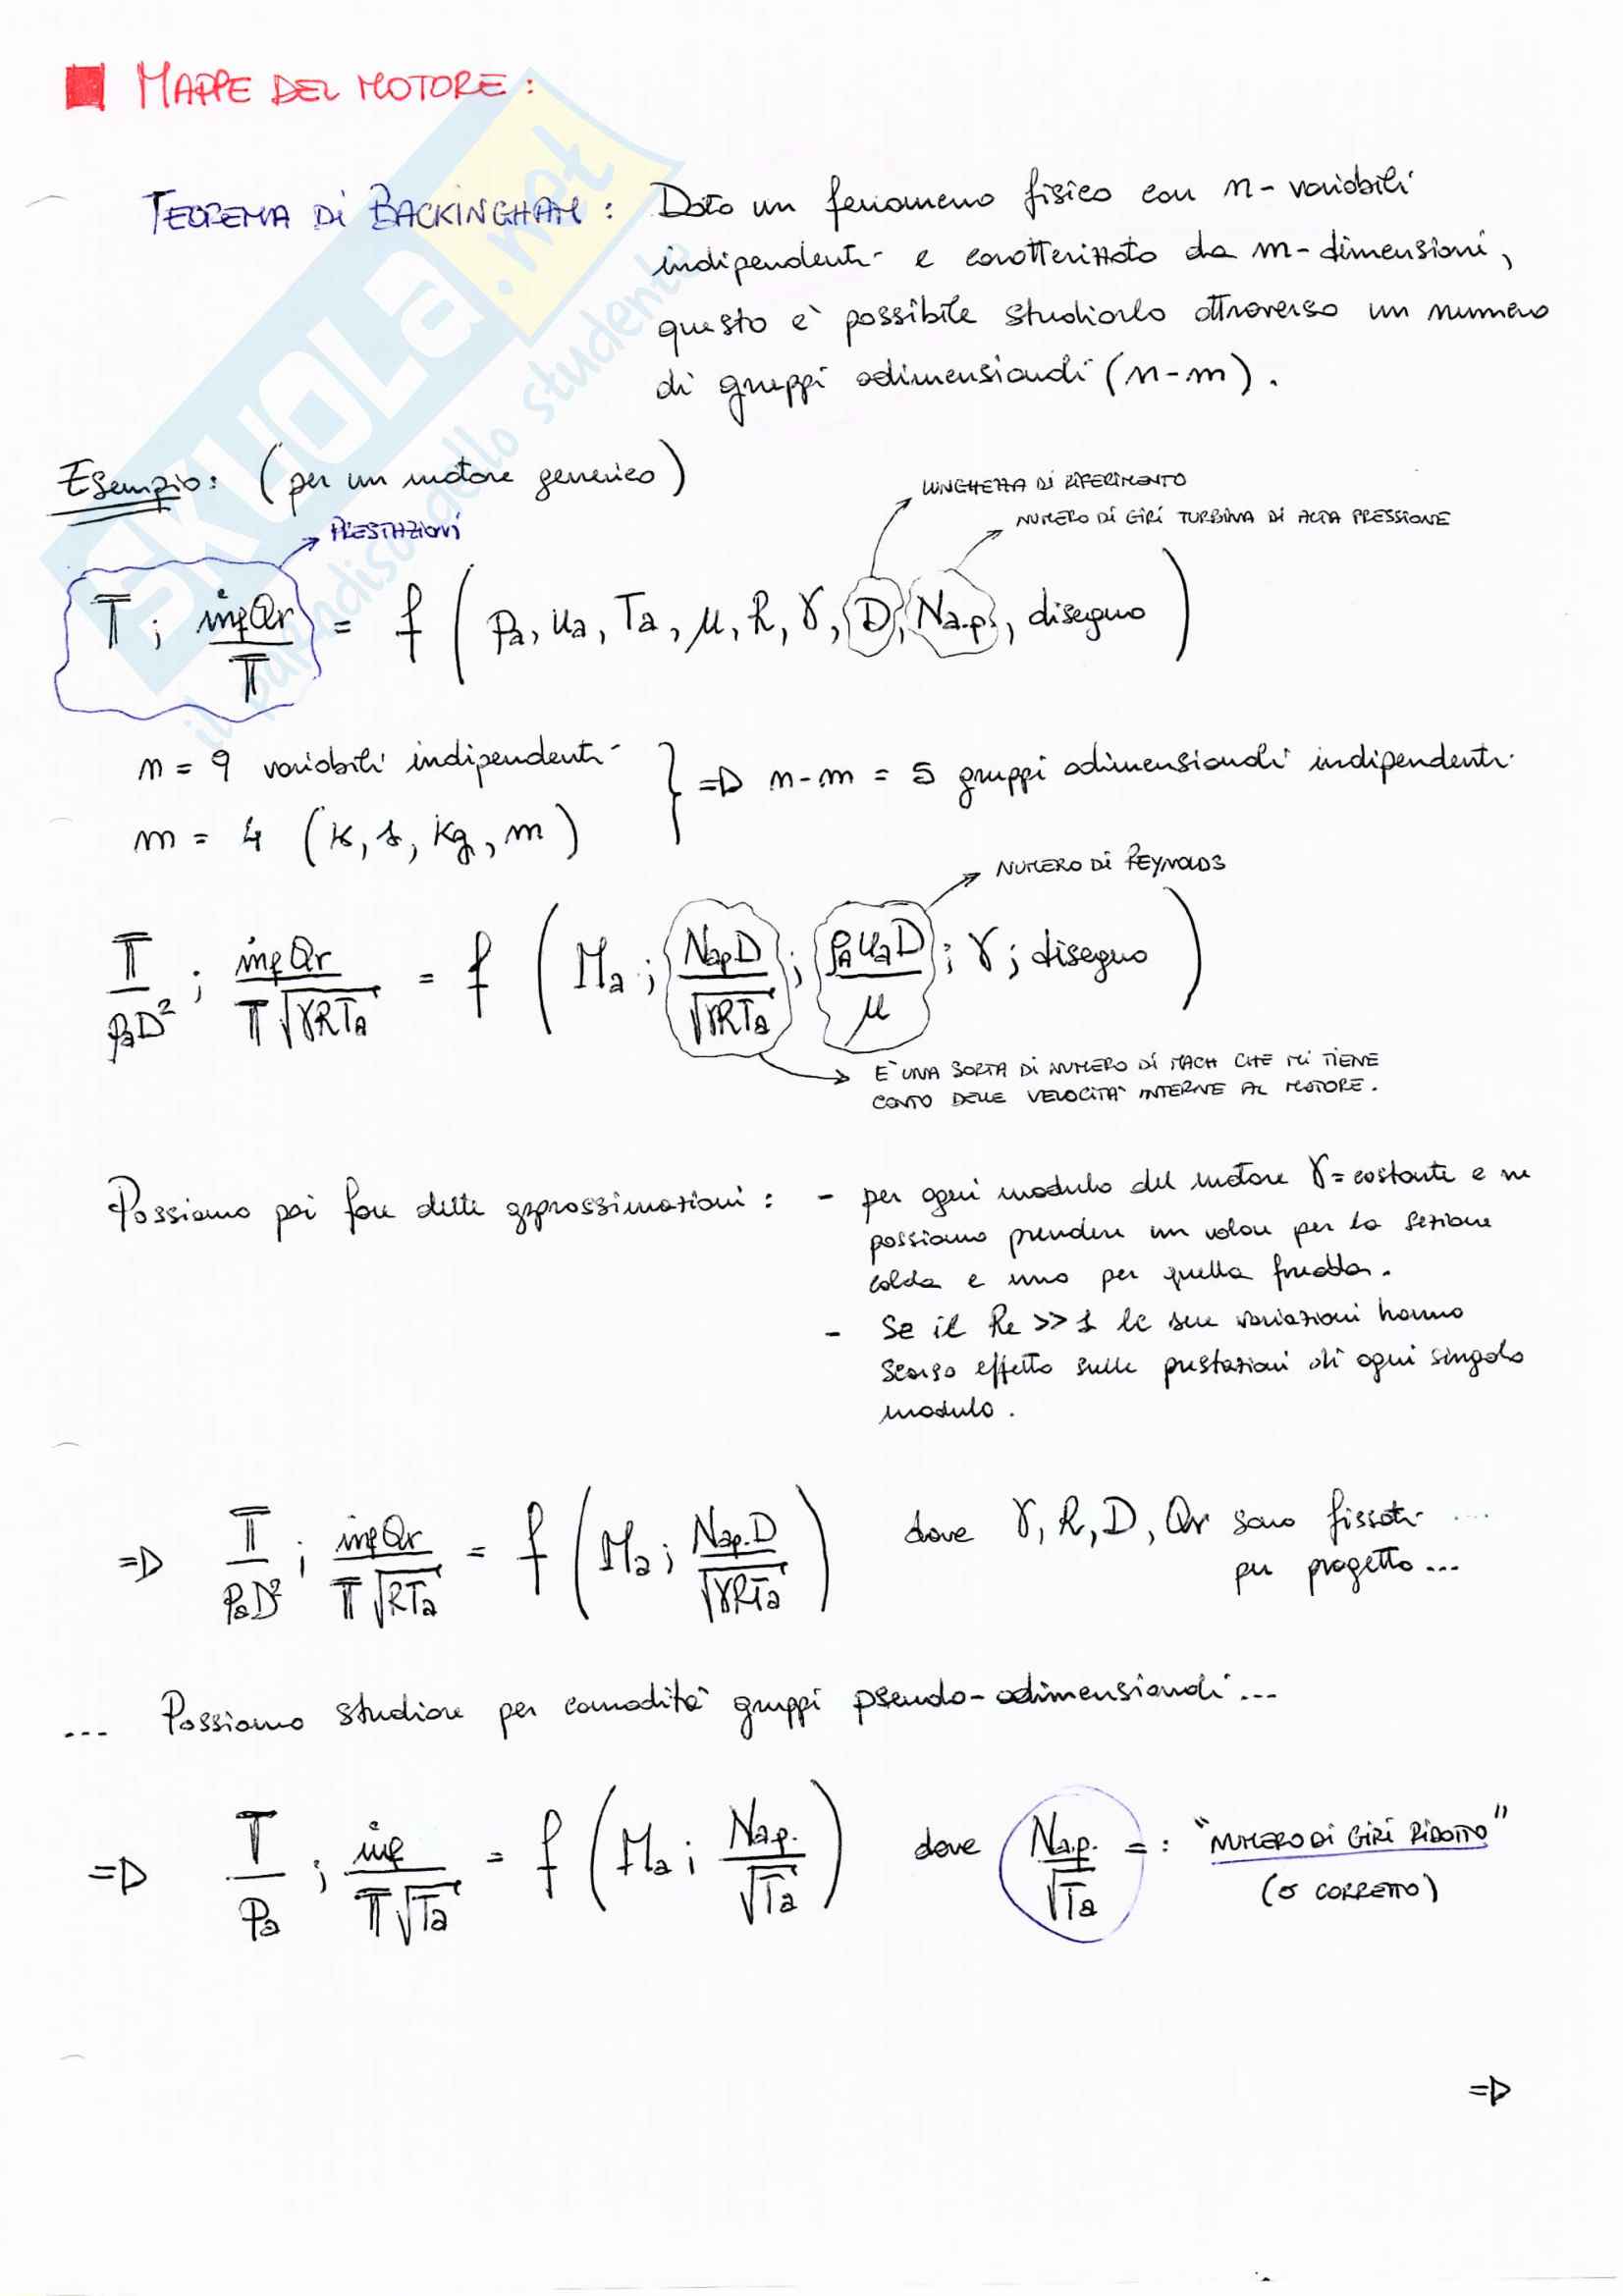 MAPPE DEL MOTORE :
TEOREMA DI BACKINGHAM : Dato un fenomeno fisico con n-variabili
indipendenti e caratterizzato da m-dimensioni,
questo è possibile studiarlo attraverso un numero
di gruppi adimensionali (n-m).
Esempio: (per un motore generico)
LUNGHEZZA DI RIFERIMENTO
NUMERO DI GIRI TURBINA DI ALTA PRESSIONE
PRESTAZIONI
T ; ṁf Qr / T = f ( Pa, ua, Ta, μ, R, γ, D, Na.p., disegno )
n = 9 variabili indipendenti
m = 4 (K, s, Kg, m)
=> n-m = 5 gruppi adimensionali indipendenti
NUMERO DI REYNOLDS
T / PaD² ; ṁf Qr / T√γRTa = f ( Ma ; Nap D / √γRTa ; ρa ua D / μ ; γ ; disegno )
E' UNA SORTA DI NUMERO DI MACH CHE MI TIENE
CONTO DELLE VELOCITA' INTERNE AL MOTORE.
Possiamo poi fare delle approssimazioni : - per ogni modulo del motore γ = costante e ne
possiamo prendere un valore per la sezione
calda e uno per quella fredda.
- Se il Re >> 1 le sue variazioni hanno
scarso effetto sulle prestazioni di ogni singolo
modulo.
=> T / PaD² ; ṁf Qr / T√RTa = f ( Ma ; Nap. D / √γRTa ) dove γ, R, D, Qr sono fissati ...
per progetto ...
... Possiamo studiare per comodità gruppi pseudo-adimensionali ...
=> T / Pa ; ṁf / T√Ta = f ( Ma ; Na.p. / √Ta ) dove Na.p. / √Ta = : "NUMERO DI GIRI RIDOTTO"
(O CORRETTO)
=>
SKUOLA.net
il paradiso dello studente